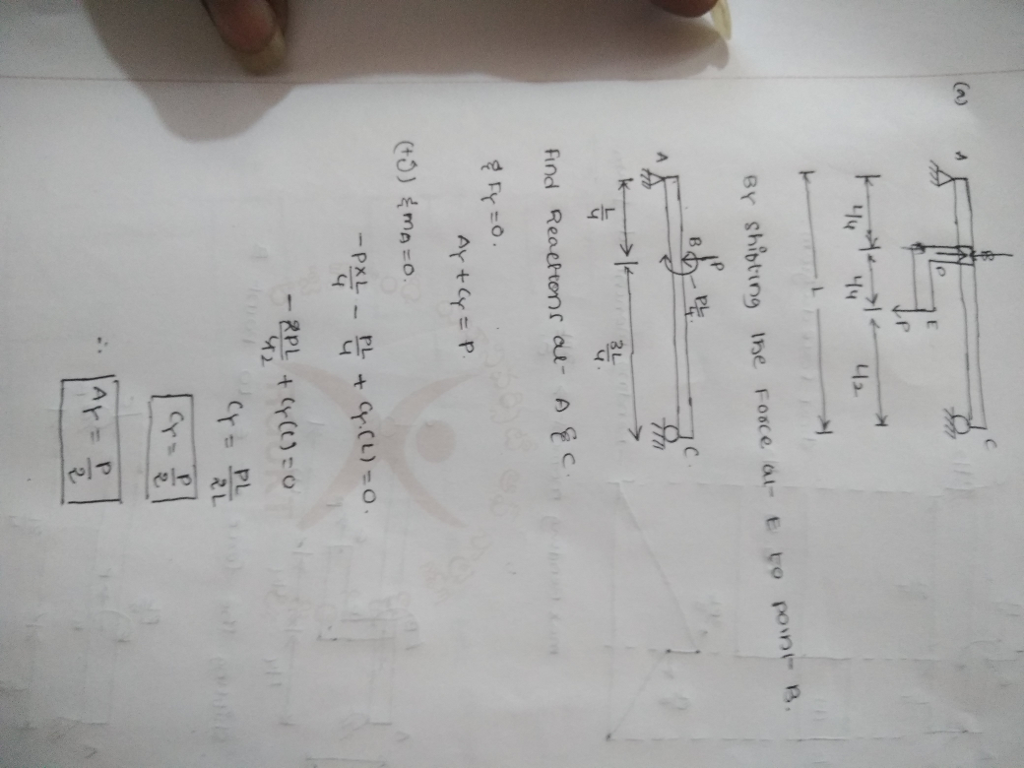 (a)
A B C
D E
P
L/4 L/4 L/2
L
By shibting the Force at E to point B.
A B P PL/4 C
L/4 3L/4
Find Reactions at A & C.
Σ Fy = 0.
Ay + Cy = P.
(+↺) Σ mA = 0.
- P × L/4 - PL/4 + Cy(L) = 0.
- 2PL/4 2 + Cy(L) = 0
Cy = PL/2L
Cy = P/2
∴ Ay = P/2